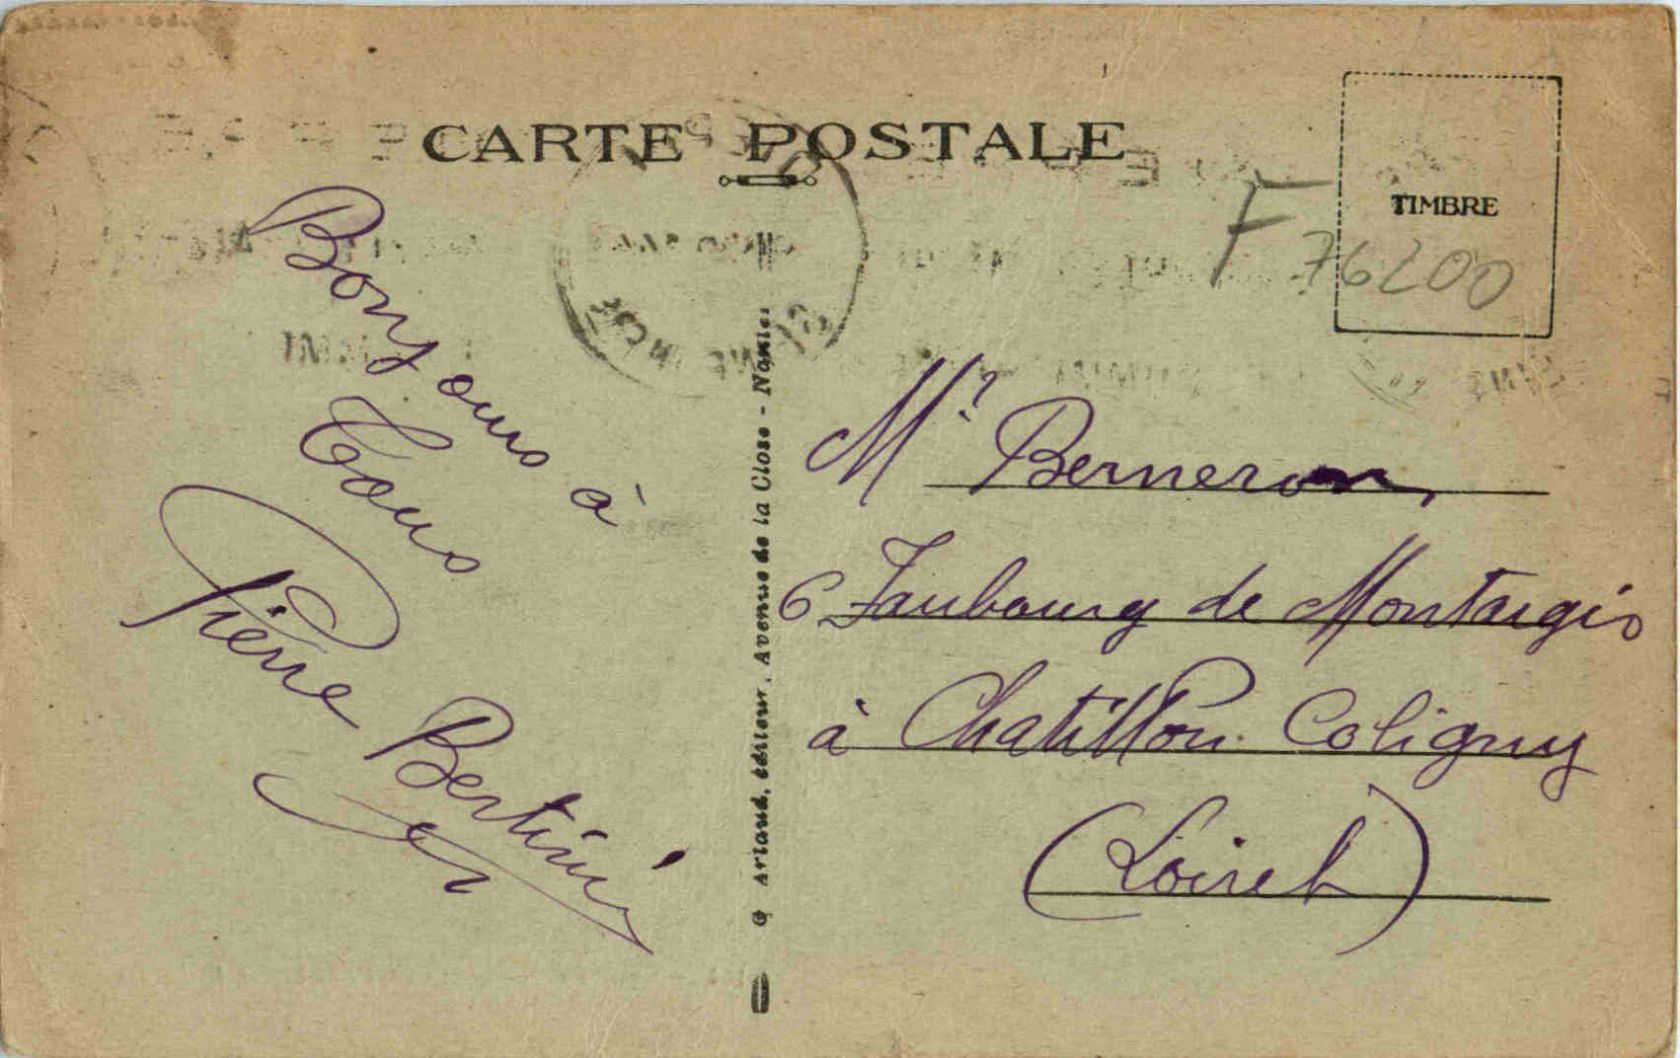 CARTE POSTALE
TIMBRE
F 76200
Bonjours à
Tous
Pierre Bertini
G Artaud, éditeur. Avenue de la Close - Nantes
Mr Berneron,
6 Faubourg de Montargis
à Chatillon Coligny
(Loiret)